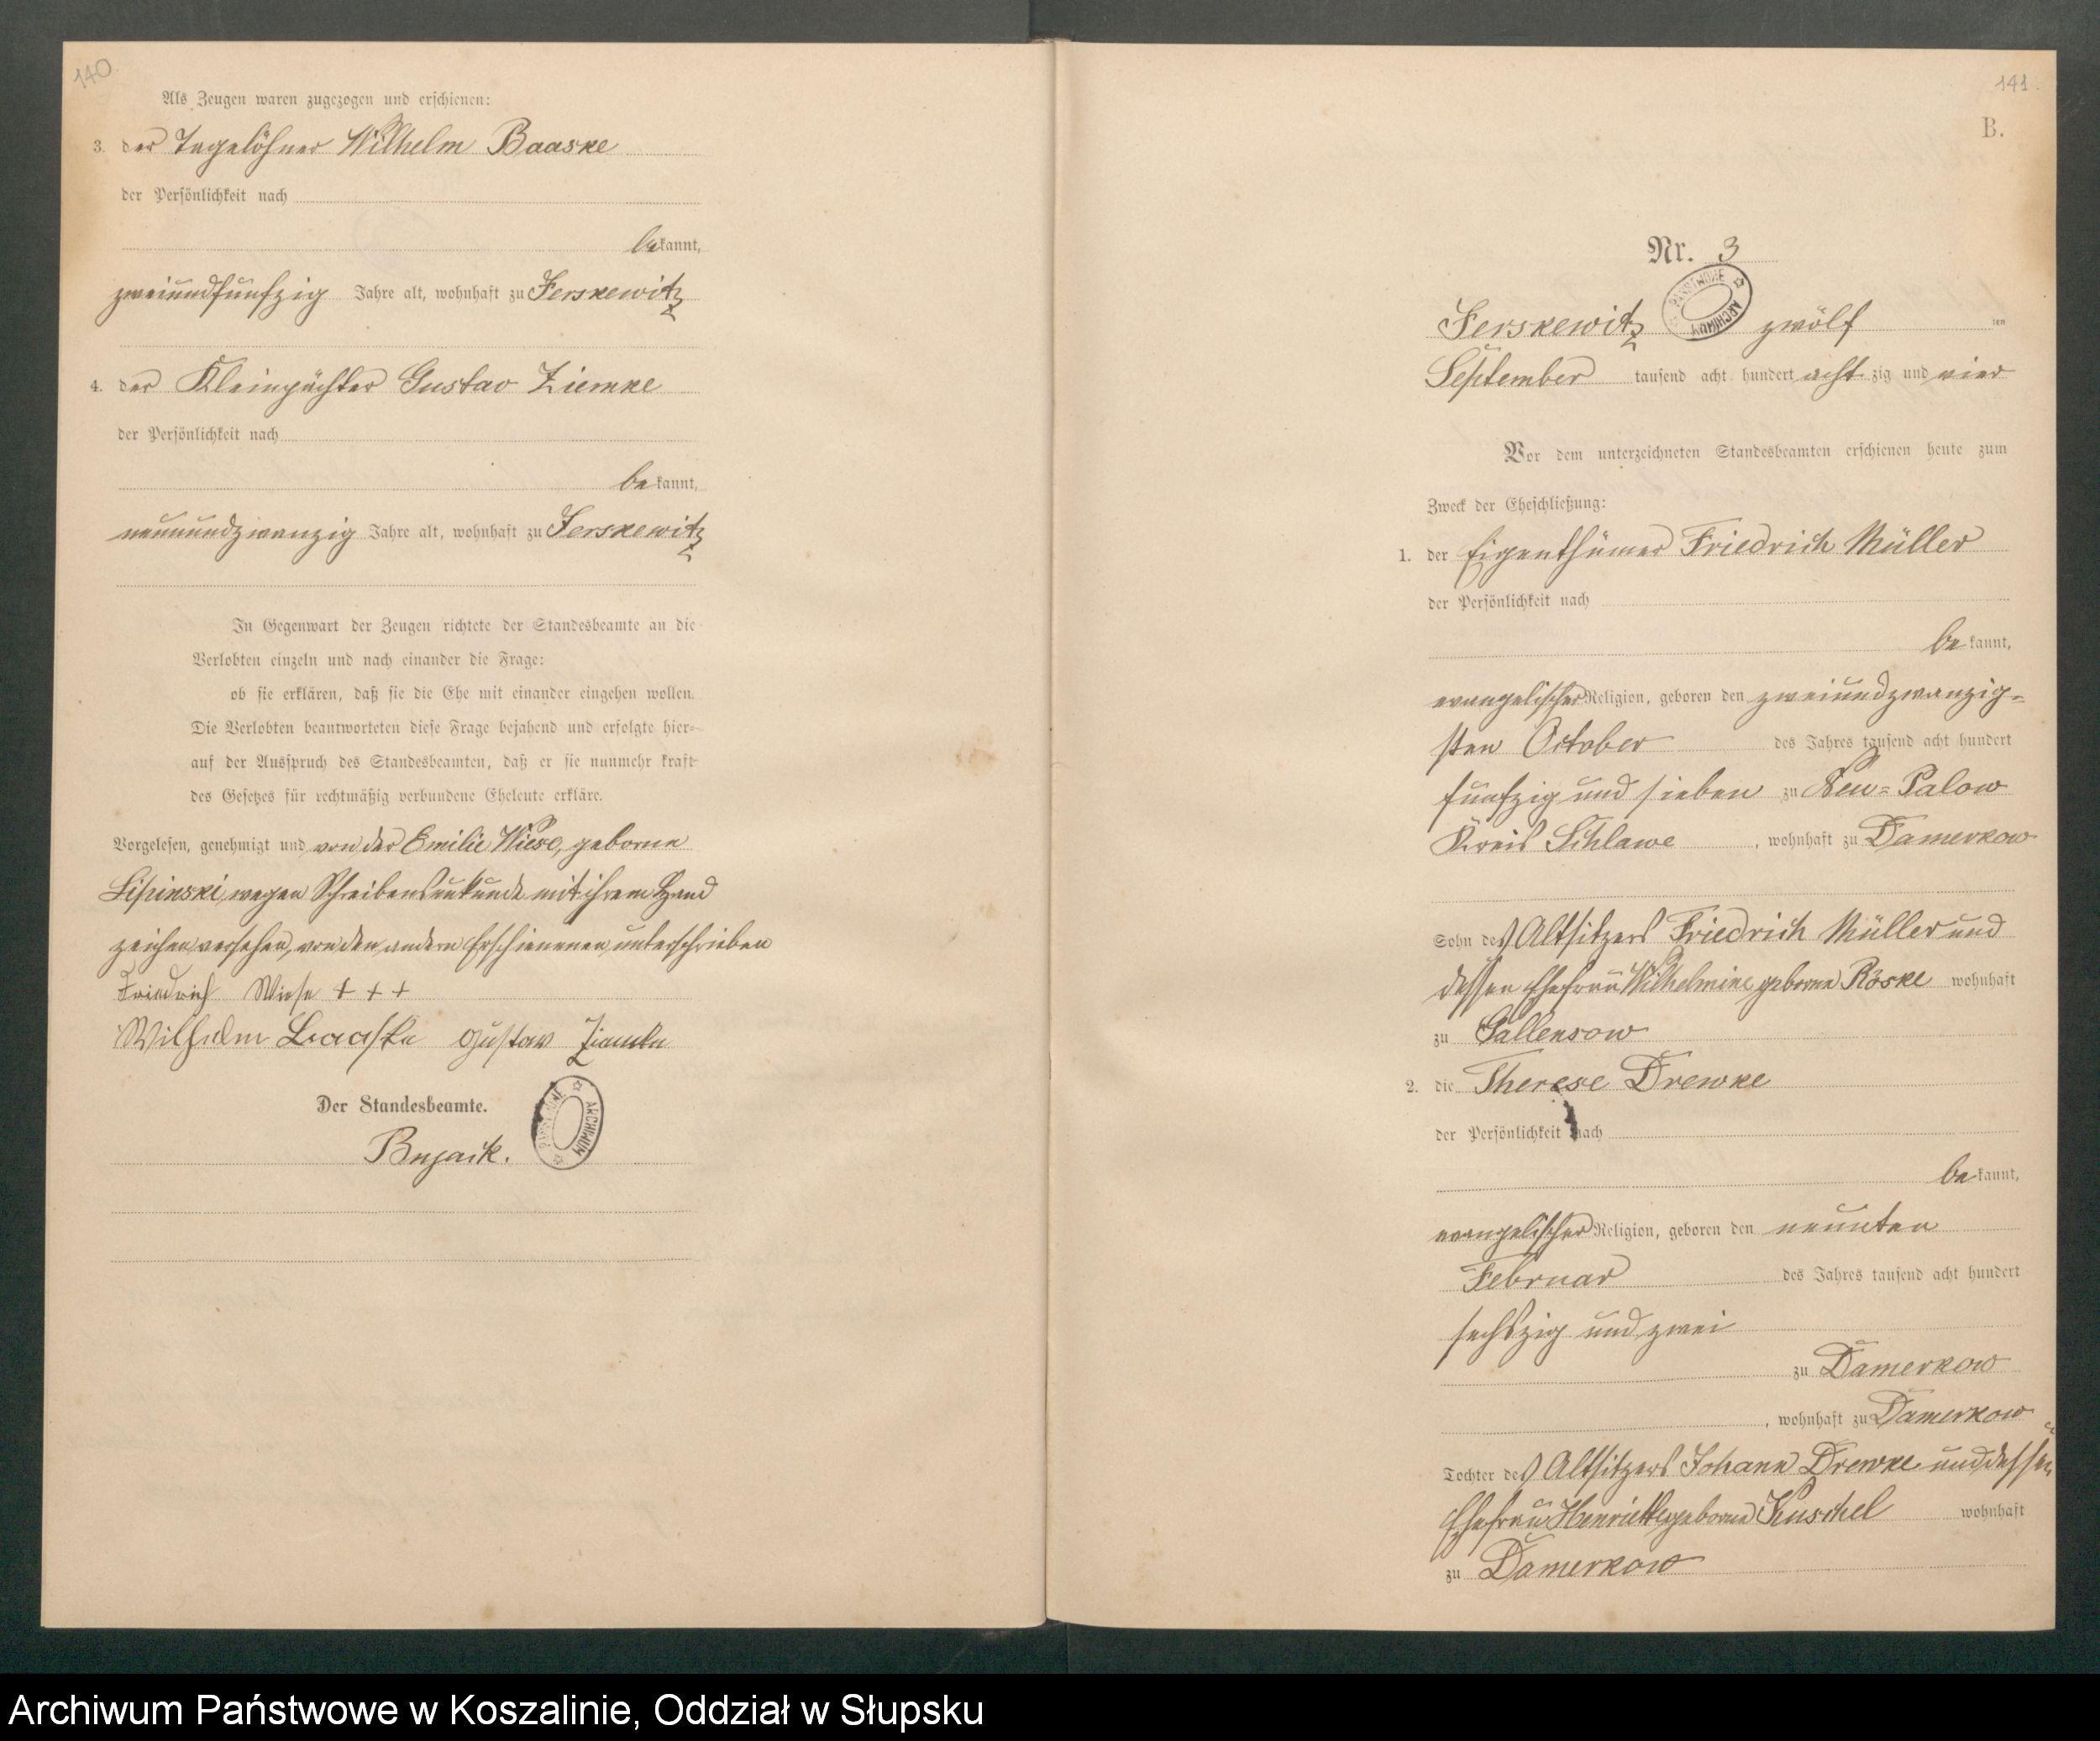 140.
Als Zeugen waren zugezogen und erschienen:
3. der Tagelöhner Wilhelm Baaske
der Persönlichkeit nach
bekannt,
zweiundfunfzig Jahre alt, wohnhaft zu Jerskewitz
4. der Kleinpächter Gustav Ziemke
der Persönlichkeit nach
bekannt,
neunundzwanzig Jahre alt, wohnhaft zu Jerskewitz
In Gegenwart der Zeugen richtete der Standesbeamte an die
Verlobten einzeln und nach einander die Frage:
ob sie erklären, daß sie die Ehe mit einander eingehen wollen.
Die Verlobten beantworteten diese Frage bejahend und erfolgte hier-
auf der Ausspruch des Standesbeamten, daß er sie nunmehr kraft
des Gesetzes für rechtmäßig verbundene Eheleute erkläre.
Vorgelesen, genehmigt und von der Emilie Wiese, geborne
Lipinski, wegen Schreibensunkunde mit ihrem Hand
zeichen versehen, von den andern Erschienenen unterschrieben
Friedrich Wiese + + +
Wilhelm Baaske Gustav Ziemke
Der Standesbeamte.
ARCHIWUM PAŃSTWOWE
141.
B.
Nr. 3
ARCHIWUM PAŃSTWOWE
Jerskewitz zwölf ten
September tausend acht hundert achtzig und vier
Vor dem unterzeichneten Standesbeamten erschienen heute zum
Zweck der Eheschließung:
1. der Eigenthümer Friedrich Müller
der Persönlichkeit nach
bekannt,
evangelischer Religion, geboren den zweiundzwanzig-
sten October des Jahres tausend acht hundert
funfzig und sieben zu Neu-Palow
Kreis Schlawe, wohnhaft zu Damerkow
Sohn des Altsitzers Friedrich Müller und
dessen Ehefrau Wilhelmine geborne Röske wohnhaft
zu Gallensow
2. die Therese Drewke
der Persönlichkeit nach
bekannt,
evangelischer Religion, geboren den neunten
Februar des Jahres tausend acht hundert
sechszig und zwei
zu Damerkow
, wohnhaft zu Damerkow
Tochter des Altsitzers Johann Drewke und dessen
Ehefrau Henriette geborne Kuschel wohnhaft
zu Damerkow
Archiwum Państwowe w Koszalinie, Oddział w Słupsku